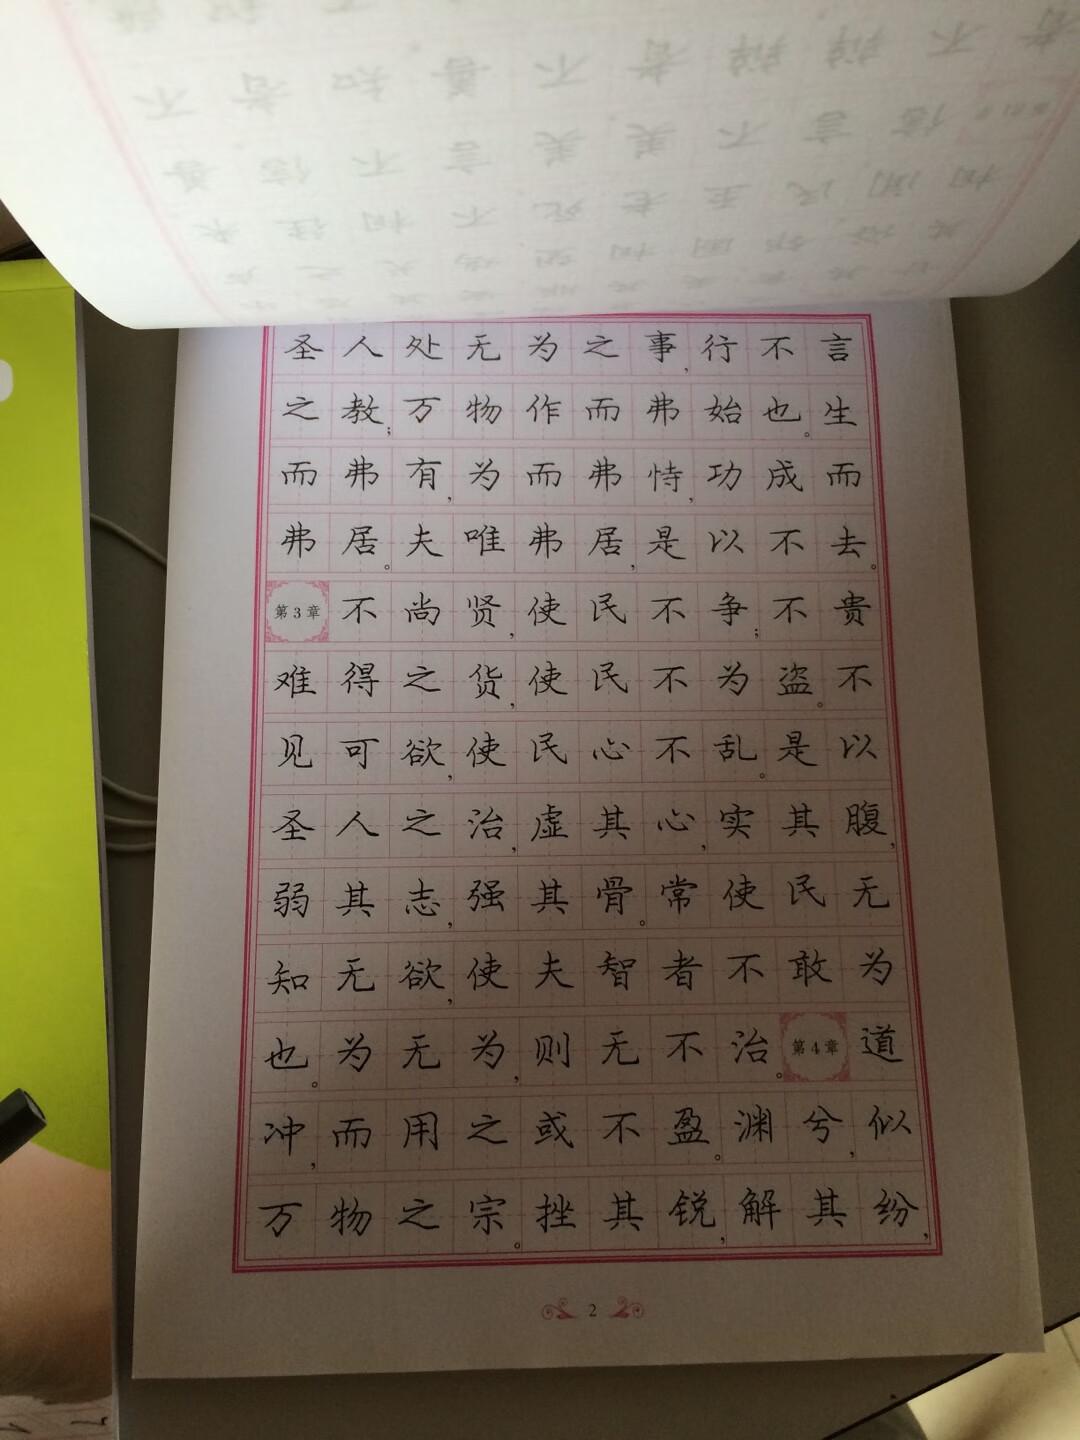 圣人处无为之事,行不言
之教;万物作而弗始也。生
而弗有,为而弗恃,功成而
弗居。夫唯弗居,是以不去。
第3章 不尚贤,使民不争;不贵
难得之货,使民不为盗。不
见可欲,使民心不乱。是以
圣人之治,虚其心,实其腹,
弱其志,强其骨。常使民无
知无欲,使夫智者不敢为
也。为无为,则无不治。第4章 道
冲,而用之或不盈。渊兮,似
万物之宗。挫其锐,解其纷,
2